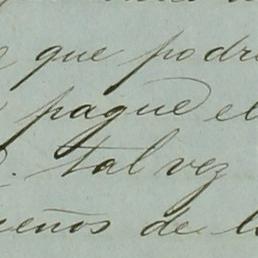 que podr
pague el
tal vez
eños de l